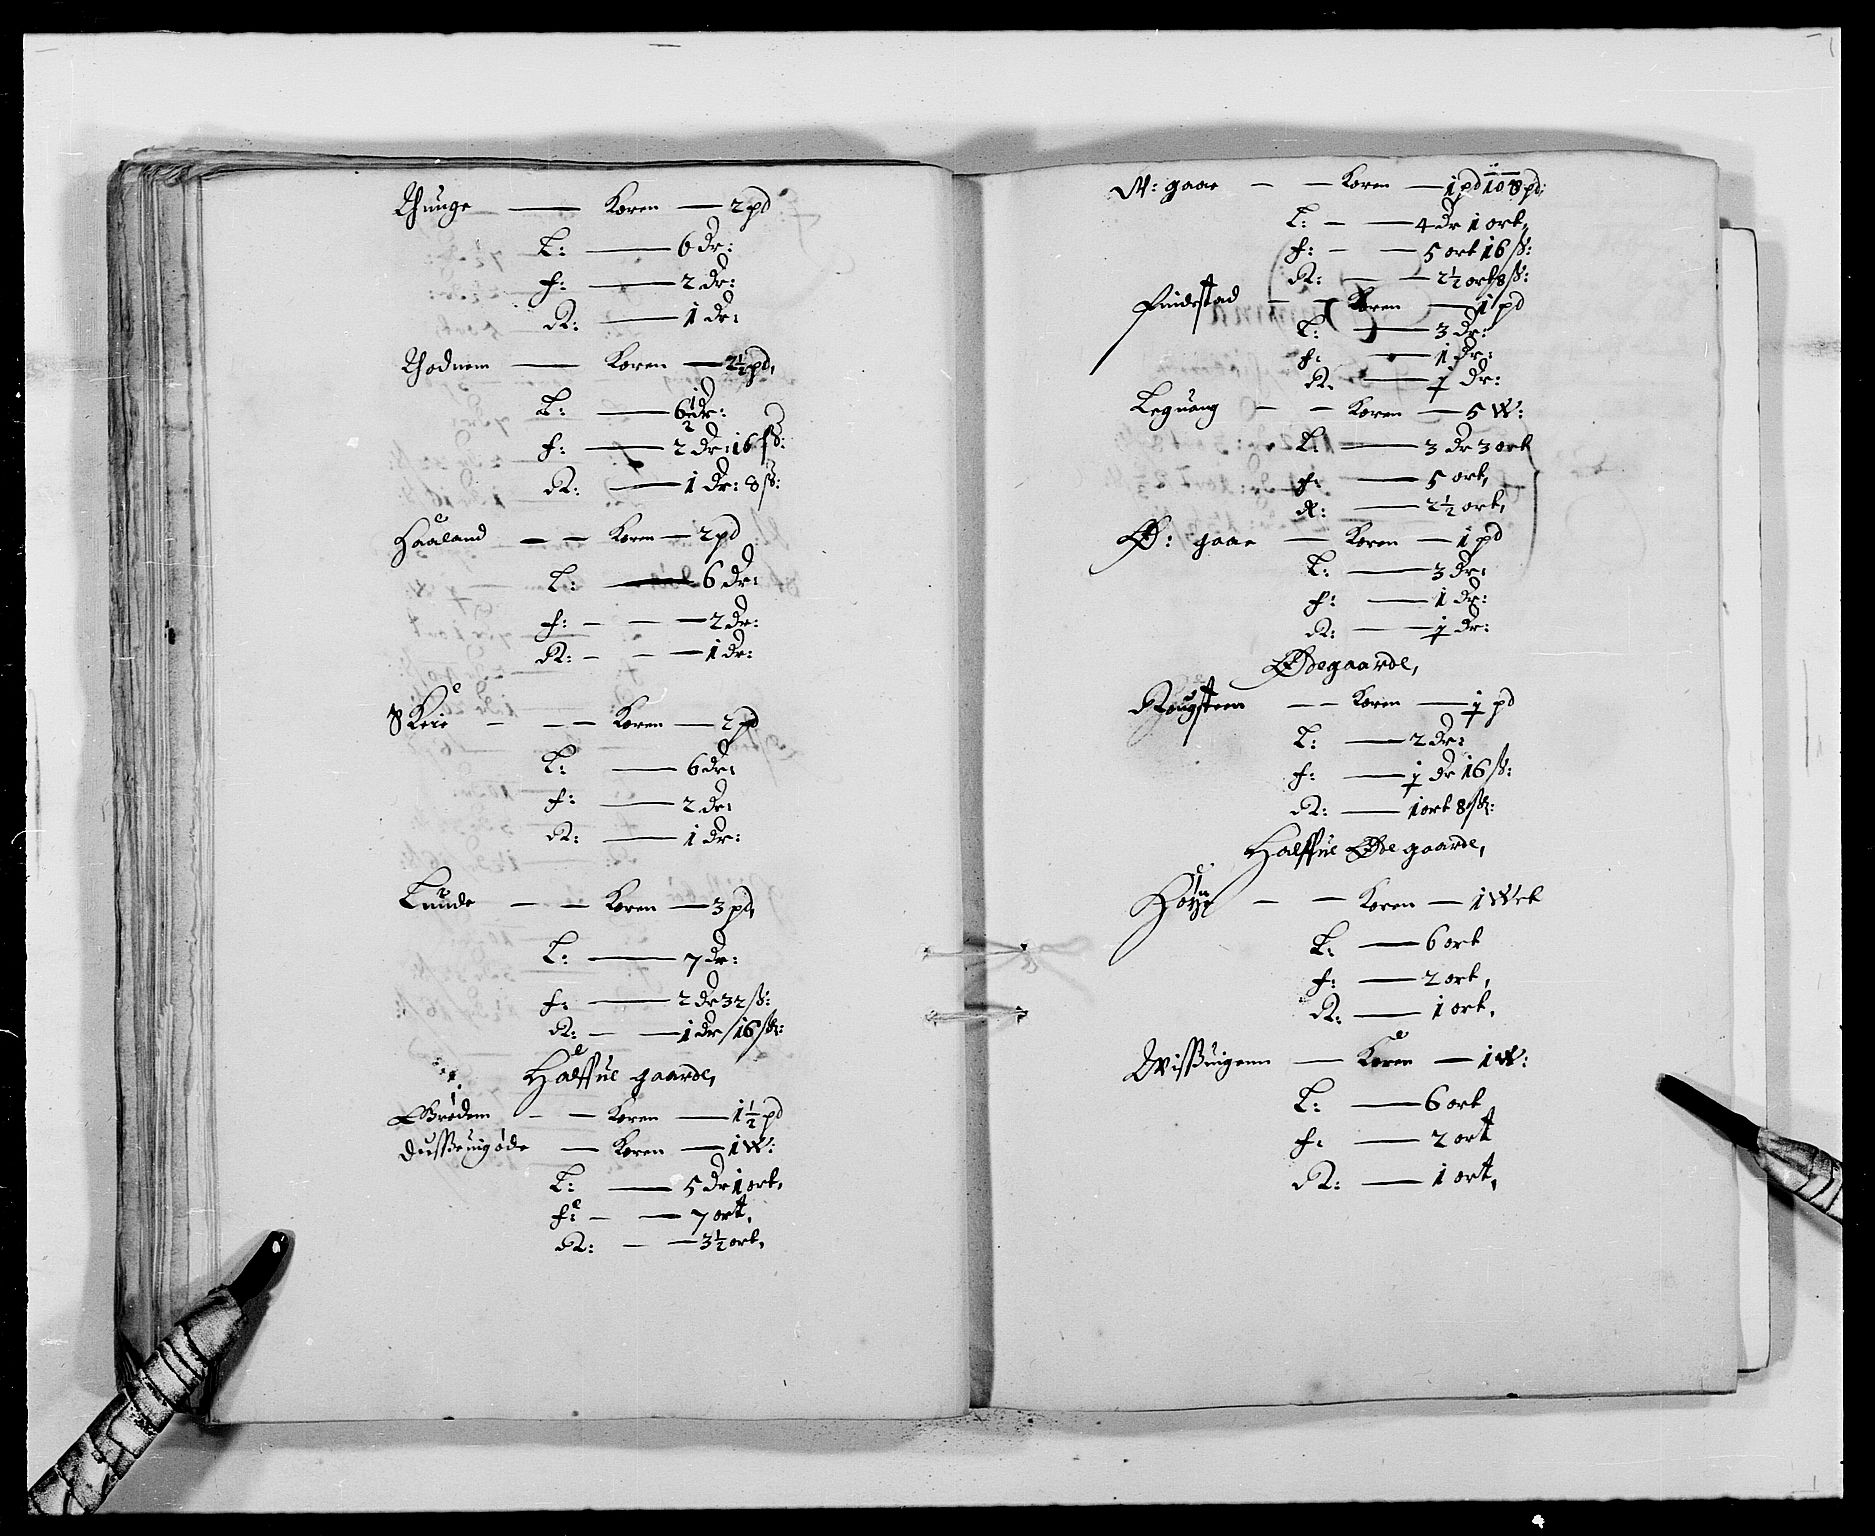 Thunge — Koren — 2 pd
L: — 6 dr:
f: — 2 dr:
R: — 1 dr:
Thodnem — Koren — 2½ pd,
L: — 6½ dr:
f: — 2 dr: 16 ß:
R: — 1 dr: 8 ß:
Haaland — — Koren — 2 pd
L: — 6 dr:
f: — — — 2 dr:
R: — — — 1 dr:
Skeie — — — Koren — 2 pd
L: — 6 dr:
f: — 2 dr:
R: — 1 dr:
Lunde — — Koren — 3 pd,
L: — 7 dr:
f: — 2 dr 32 ß:
R: — — 1 dr 16 ß:
Halffue gaarde,
Grødem — — Koren — 1½ pd
— Koren — 1 W:
L: — 5 dr 1 ort,
f: — — 7 ort,
R: — — 3½ ort,
W: gaar — — Koren — 1 pd 10 8 pd:
L: — — 4 dr 1 ort,
f: — — 5 ort 16 ß:
R: — — 2½ ort 8 ß:
Findestad — — Koren — 1 pd
L: — 3 dr:
f: — 1 dr:
R. — ½ dr:
Leguang — — Koren — 5 W:
L: — 3 dr 3 ort
f: — 5 ort,
R: — 2½ ort,
Ø: gaar — Koren — 1 pd
L: — 3 dr:
f: — 1 dr:
R: — ½ dr:
Ødegaarde,
Rougsteen — — Koren — ½ pd
L: — 2 dr:
f: — ½ dr 16 ß:
R: — 1 ort 8 ß:
Halffue Øde gaarde,
— — Koren — 1 Wet
L: — 6 ort
f: — 2 ort,
R: — 1 ort,
Wisßuigenn — Koren — 1 W:
L: — 6 ort
f: — 2 ort
R: — 1 ort,